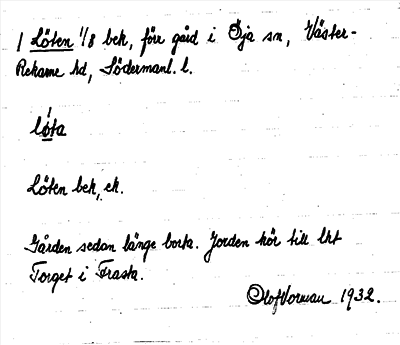 / Löten 1/8 bek, förr gård i Öja sn, Väster-
Rekarne hd, Södermanl. l.
lö̀ta
Löten bek, ek.
Gården sedan länge borta. Jorden hör till lht
Torget i Frasta.
Olof Vorman 1932.